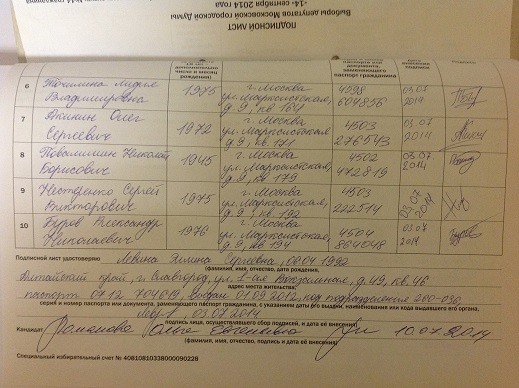 ПОДПИСНОЙ ЛИСТ
Выборы депутатов Московской городской Думы
"14" сентября 2014 года
6 Владимировна 1975 г. Москва ул. Марксистская, д. 9, кв 164 4598 604856 03.07 2014
7 Аникин Олег Сергеевич 1972 г. Москва ул. Марксистская д. 9, кв 171 4503 276543 03.07 2014
8 Николай Борисович 1945 г. Москва ул. Марксистская, д. 9, кв 179 4502 472819 03.07 2014
9 Нестеренко Сергей Викторович 1975 г. Москва ул. Марксистская, д. 9, кв. 192 4503 222514 03.07 2014
10 Александр Николаевич 1976 г. Москва ул. Марксистская, д. 9, кв 194 4504 864048 03.07 2014
Подписной лист удостоверяю Левина Ялмина Сергеевна, 06.04.1992
(фамилия, имя, отчество, дата рождения,
Алтайский край, г. Славгород, ул. 1-ая Вокзальная, д. 49, кв. 46
адрес места жительства,
паспорт 0712 704619, выдан 01.09.2012, код подразделения 260-036,
серия и номер паспорта или документа, заменяющего паспорт гражданина, с указанием даты его выдачи, наименования или кода выдавшего его органа,
03.07.2014
подпись лица, осуществлявшего сбор подписей, и дата её внесения)
Кандидат Романова Ольга Евгеньевна 10.07.2014
(фамилия, имя, отчество, подпись и дата её внесения)
Специальный избирательный счет № 40810810338000090228